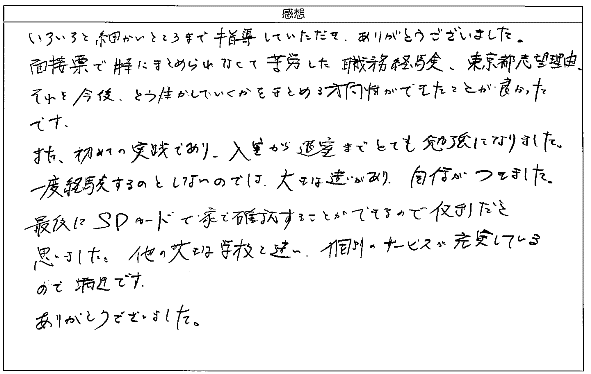 感想
いろいろと細かいところまで指導していただき、ありがとうございました。
面接票で特にまとめられなくて苦労した職務経験、東京都志望理由、
それを今後、どう生かしていくかをまとめる方向性ができたことが良かった
です。
また、初めての実践であり、入室から退室までとても勉強になりました。
一度経験するのとしないのでは、大きな違いがあり、自信がつきました。
最後にSDカードで家で確認することができるので便利だと
思いました。他の大きな学校と違い、個別のサービスが充実している
ので満足です。
ありがとうございました。